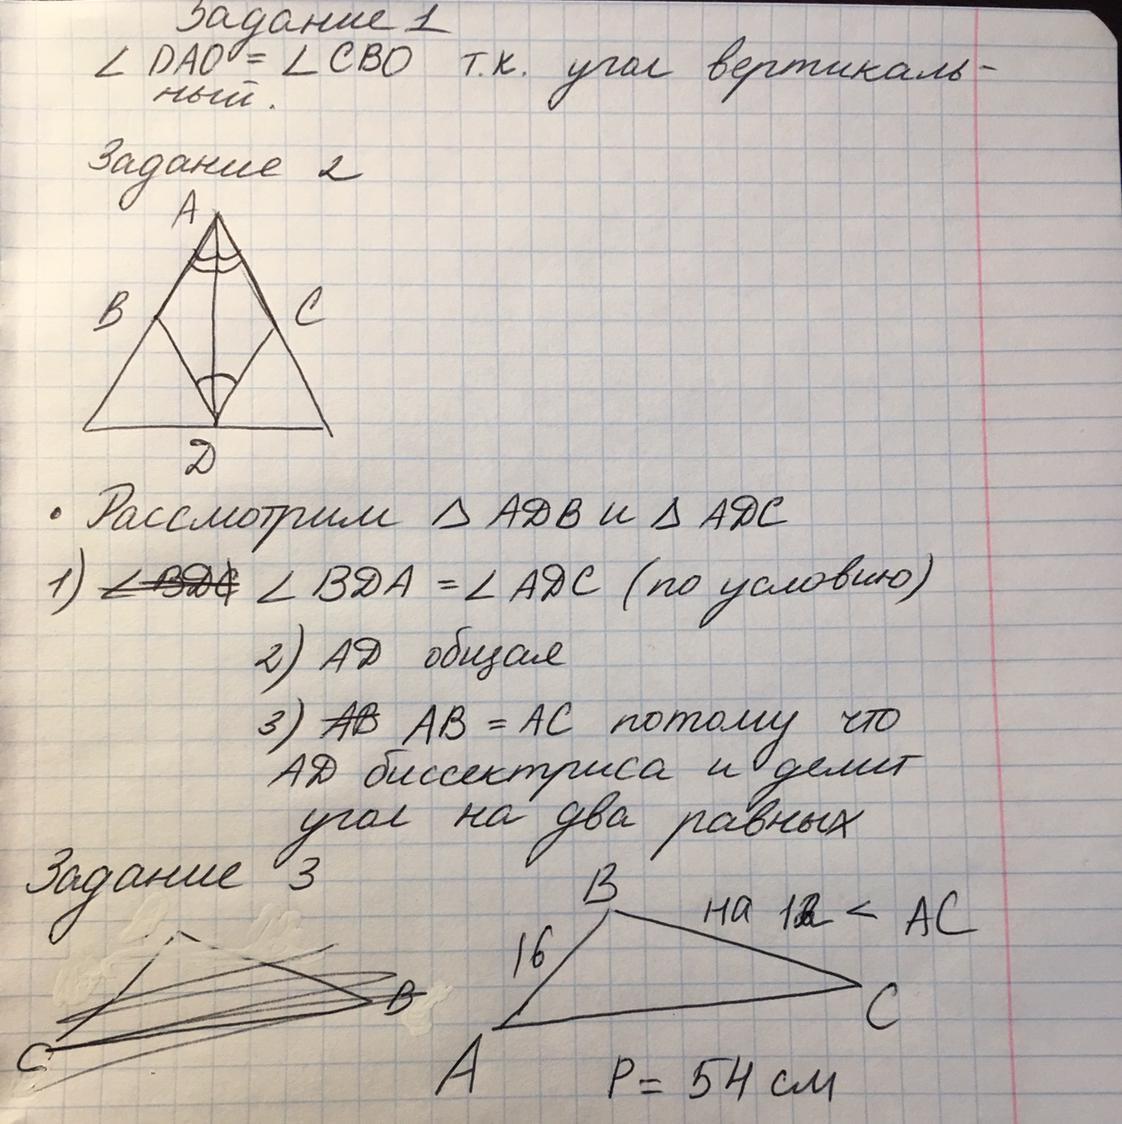 Задание 1
∠ DAO = ∠ CBO т.к. угол вертикаль-
ный.
Задание 2
A
B C
D
• Рассмотрим △ ADB и △ ADC
1) ∠ BDA = ∠ ADC (по условию)
2) AD общая
3) AB AB = AC потому что
AD биссектриса и делит
угол на два равных
Задание 3
B
на 12 < AC
16
B
C
C
A
P = 54 см